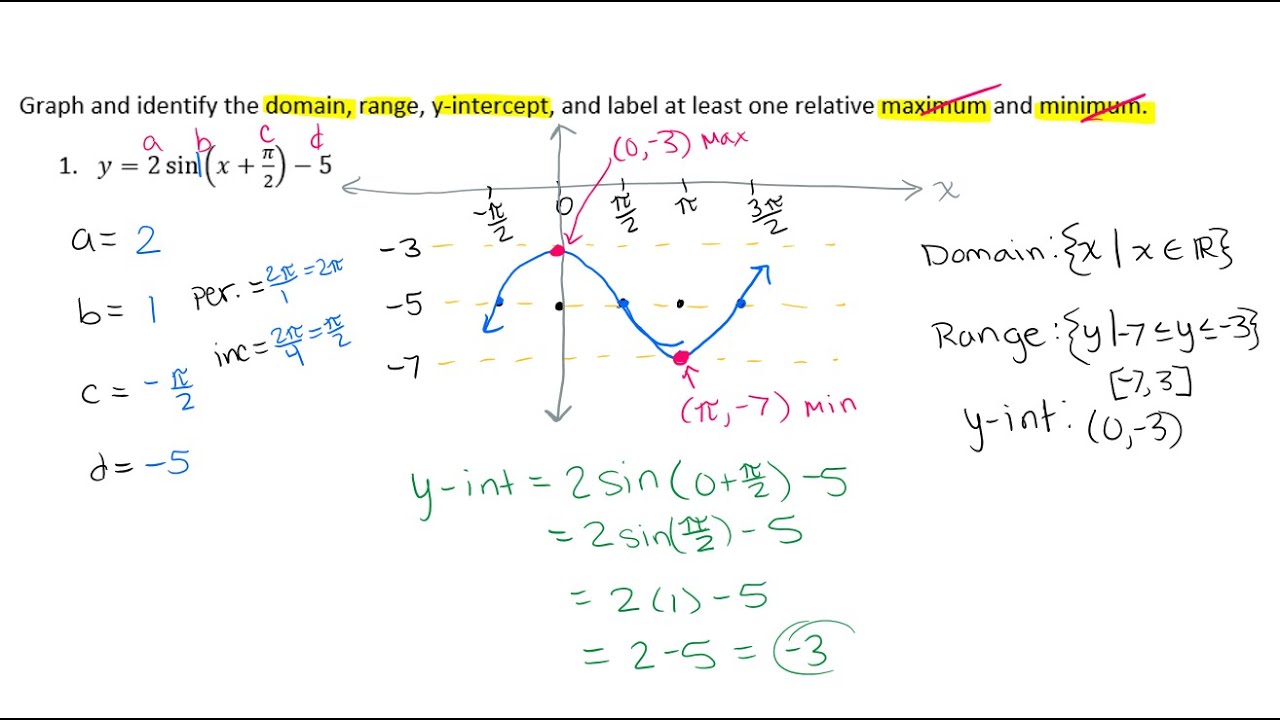 Graph and identify the domain, range, y-intercept, and label at least one relative maximum and minimum.
a b c d
1. y = 2 sin 1(x + π/2) − 5
(0,-3) Max
x
-π/2 0 π/2 π 3π/2
a = 2
b = 1
per. = 2π/1 = 2π
inc = 2π/4 = π/2
c = -π/2
d = -5
-3
-5
-7
(π,-7) min
Domain: {x | x ∈ ℝ}
Range: {y | -7 ≤ y ≤ -3}
[-7, 3]
y-int: (0,-3)
y-int = 2sin(0+π/2) -5
= 2sin(π/2) - 5
= 2(1) - 5
= 2-5 = -3